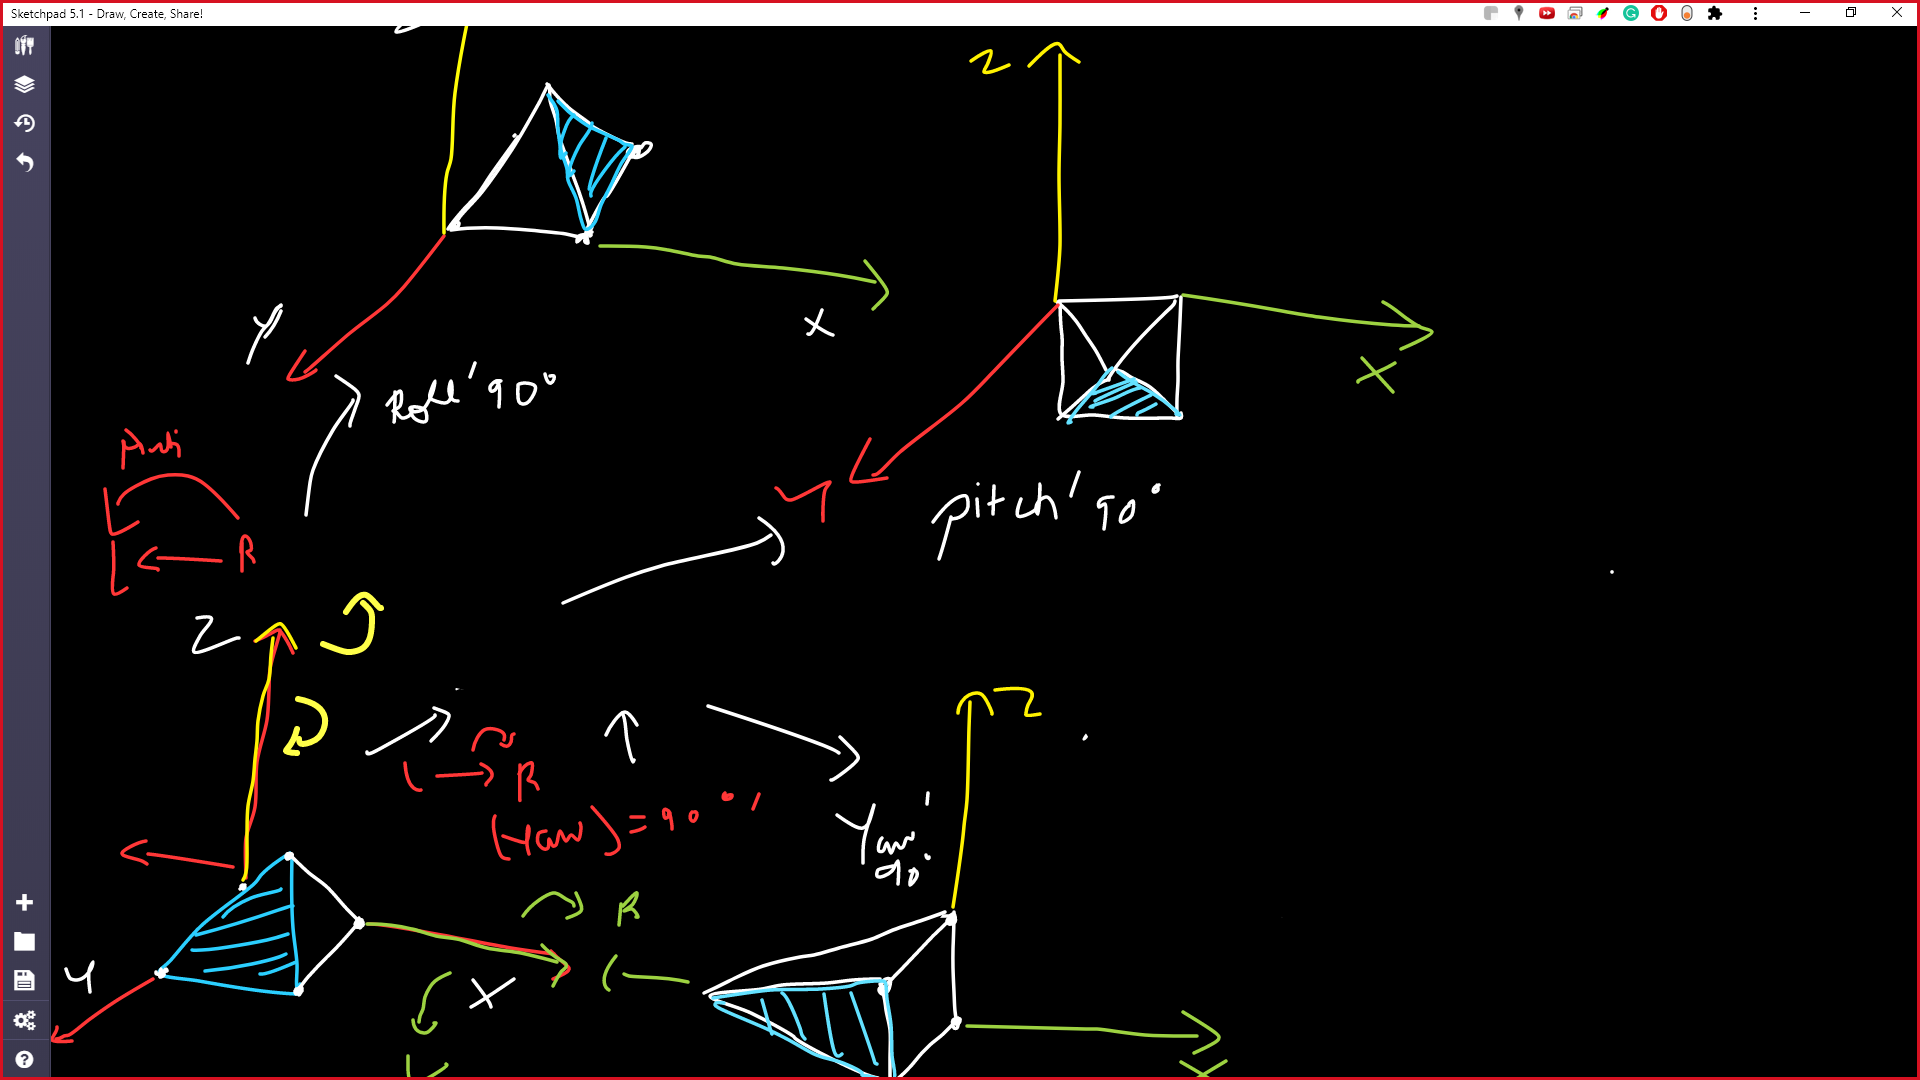 Sketchpad 5.1 - Draw, Create, Share!
Z
Y
X
Roll' 90°
X
Y
Pitch' 90°
Anti
L
L ← R
Z
Z
L → R
(Yaw) = 90°'
Yaw'
90°
R
Y
X
L